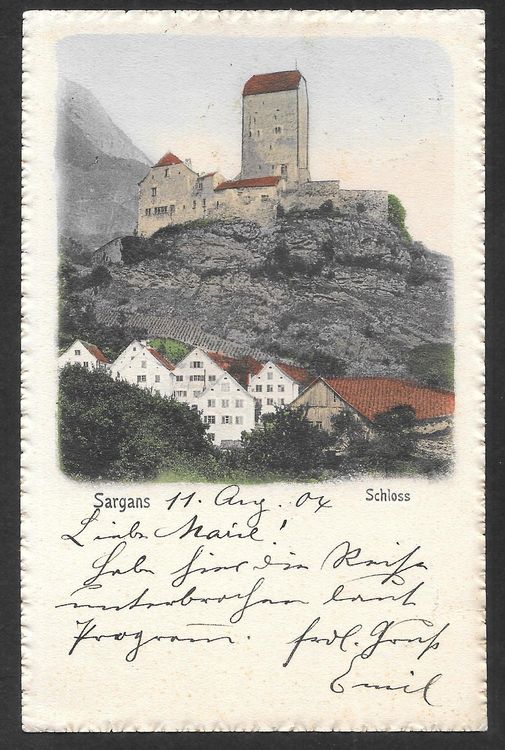 Sargans 11. Aug. 04 Schloss
Liebe Marie!
Habe hier die Reise
unterbrochen laut
Programm. frdl. Gruß
Emil